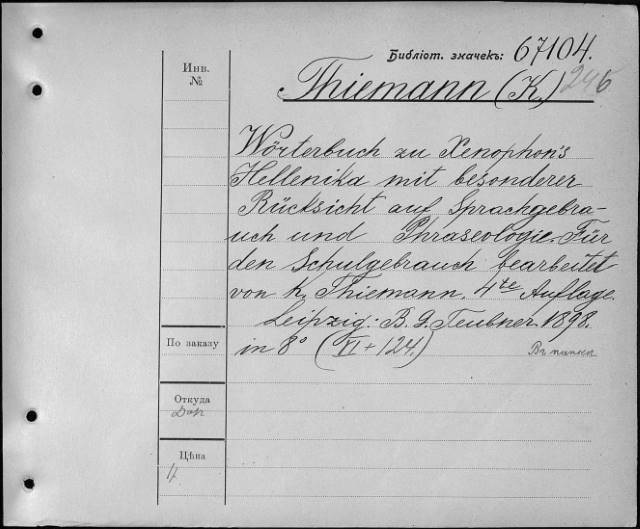 Библіот. значекъ: 67104.
Инв.
№
Thiemann (K.) 246
Wörterbuch zu Xenophon's
Hellenika mit besonderer
Rücksicht auf Sprachgebra-
uch und Phraseologie. Für
den Schulgebrauch bearbeitet
von K. Thiemann. 4te Auflage.
Leipzig: B. G. Teubner. 1898.
По заказу
in 8° (VI + 124.)
Въ папкѣ
Откуда
Дар
Цѣна